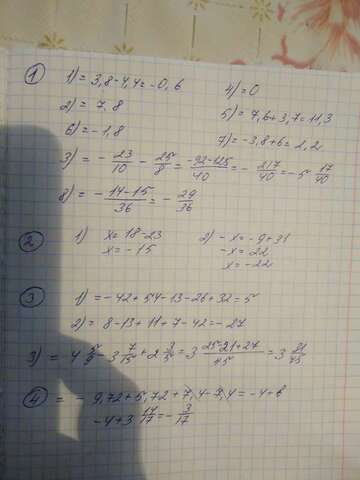 ①
1) = 3,8-4,4=-0,6
2) = 7,8
6) = -1,8
4) = 0
5) = 7,6+3,7=11,3
7) = -3,8+6=2,2
3) = - 23/10 - 25/8 = -92-125/40 = - 217/40 = -5 17/40
8) = - 14-15/36 = - 29/36
②
1) x=18-23
x=-15
2) -x=-9+31
-x=22
x=-22
③
1) =-42+54-13-26+32=5
2) = 8-13+11+7-42=-27
3) = 4 5/9 - 3 7/15 + 2 3/5 = 3 25-21+27/45 = 3 31/45
④ = -9,72+5,72+7,4-7,4=-4+
-4+3 17/17 = - 3/17